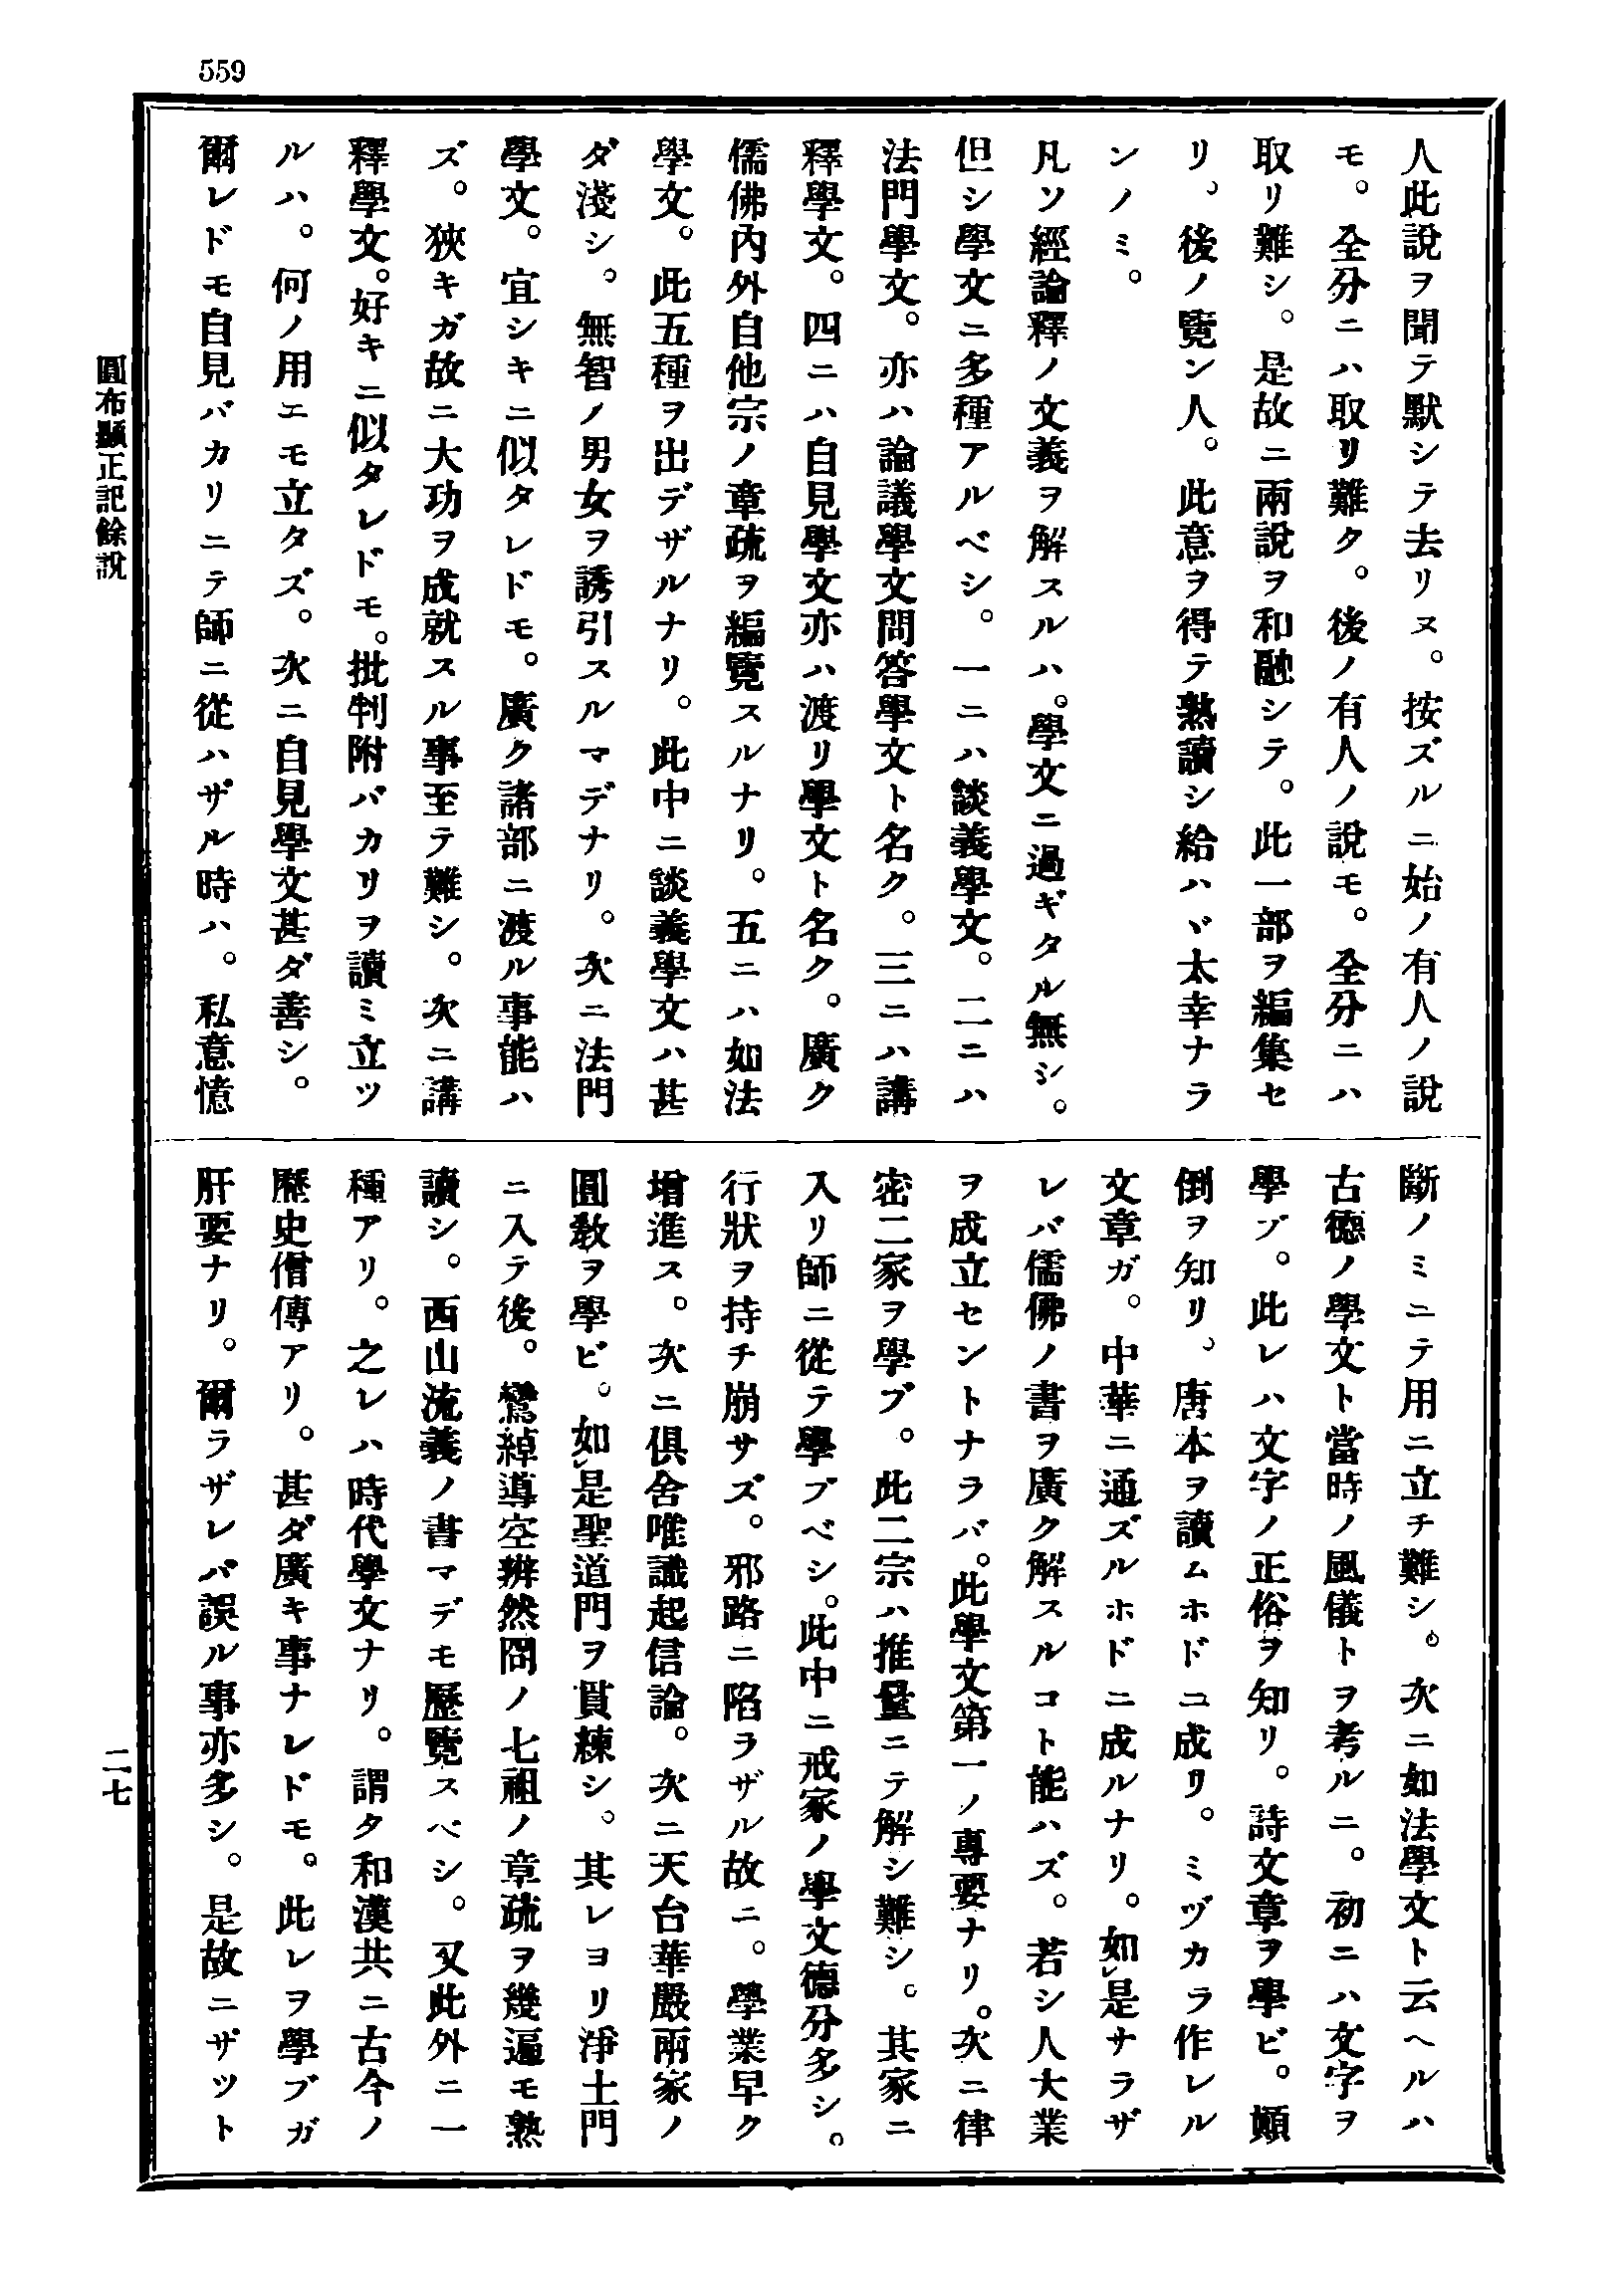 559
人此說ヲ聞テ默シテ去リヌ。按ズルニ始ノ有人ノ說
モ。全分ニハ取リ難ク。後ノ有人ノ說モ。全分ニハ
取リ難シ。是故ニ兩說ヲ和融シテ。此一部ヲ編集セ
リ、後ノ覽ン人。此意ヲ得テ熟讀シ給ハヾ太幸ナラ
ンノミ。
凡ソ經論釋ノ文義ヲ解スルハ。學文ニ過ギタル無シ。
但シ學文ニ多種アルベシ。一ニハ談義學文。二ニハ
法門學文。亦ハ論議學文問答學文ト名ク。三ニハ講
釋學文。四ニハ自見學文亦ハ渡リ學文ト名ク。廣ク
儒佛內外自他宗ノ章疏ヲ編覽スルナリ。五ニハ如法
學文。此五種ヲ出デザルナリ。此中ニ談義學文ハ甚
ダ淺シ。無智ノ男女ヲ誘引スルマデナリ。次ニ法門
學文。宜シキニ似タレドモ。廣ク諸部ニ渡ル事能ハ
ズ。狹キガ故ニ大功ヲ成就スル事至テ難シ。次ニ講
釋學文。好キニ似タレドモ。批判附バカリヲ讀ミ立ツ
ルハ。何ノ用エモ立タズ。次ニ自見學文甚ダ善シ。
爾レドモ自見バカリニテ師ニ從ハザル時ハ。私意憶
斷ノミニテ用ニ立チ難シ。次ニ如法學文ト云ヘルハ
古德ノ學文ト當時ノ風儀トヲ考ルニ。初ニハ文字ヲ
學ブ。此レハ文字ノ正俗ヲ知リ。詩文章ヲ學ビ。顚
倒ヲ知リ、唐本ヲ讀ムホドニ成リ。ミヅカラ作レル
文章ガ。中華ニ通ズルホドニ成ルナリ。如レ是サラザ
レバ儒佛ノ書ヲ廣ク解スルコト能ハズ。若シ人大業
ヲ成立セントナラバ。此學文第一ノ專要ナリ。次ニ律
密二家ヲ學ブ。此二宗ハ推量ニテ解シ難シ。其家ニ
入リ師ニ從テ學ブベシ。此中ニ戒家ノ學文德分多シ。
行狀ヲ持チ崩サズ。邪路ニ陷ラザル故ニ。學業早ク
增進ス。次ニ俱舍唯識起信論。次ニ天台華嚴兩家ノ
圓敎ヲ學ビ。如レ是聖道門ヲ貫練シ。其レヨリ淨土門
ニ入テ後。鸞綽導空辨然冏ノ七祖ノ章疏ヲ幾遍モ熟
讀シ。西山流義ノ書マデモ歷覽スベシ。又此外ニ一
種アリ。之レハ時代學文ナリ。謂タ和漢共ニ古今ノ
歷史僧傳アリ。甚ダ廣キ事ナレドモ。此レヲ學ブガ
肝要ナリ。爾ラザレバ誤ル事亦多シ。是故ニザツト
圓布顯正記餘說
二七